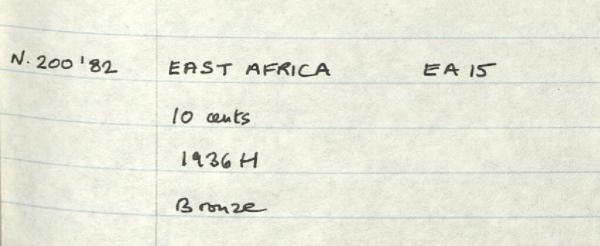 N. 200 '82 EAST AFRICA EA 15
10 cents
1936 H
Bronze